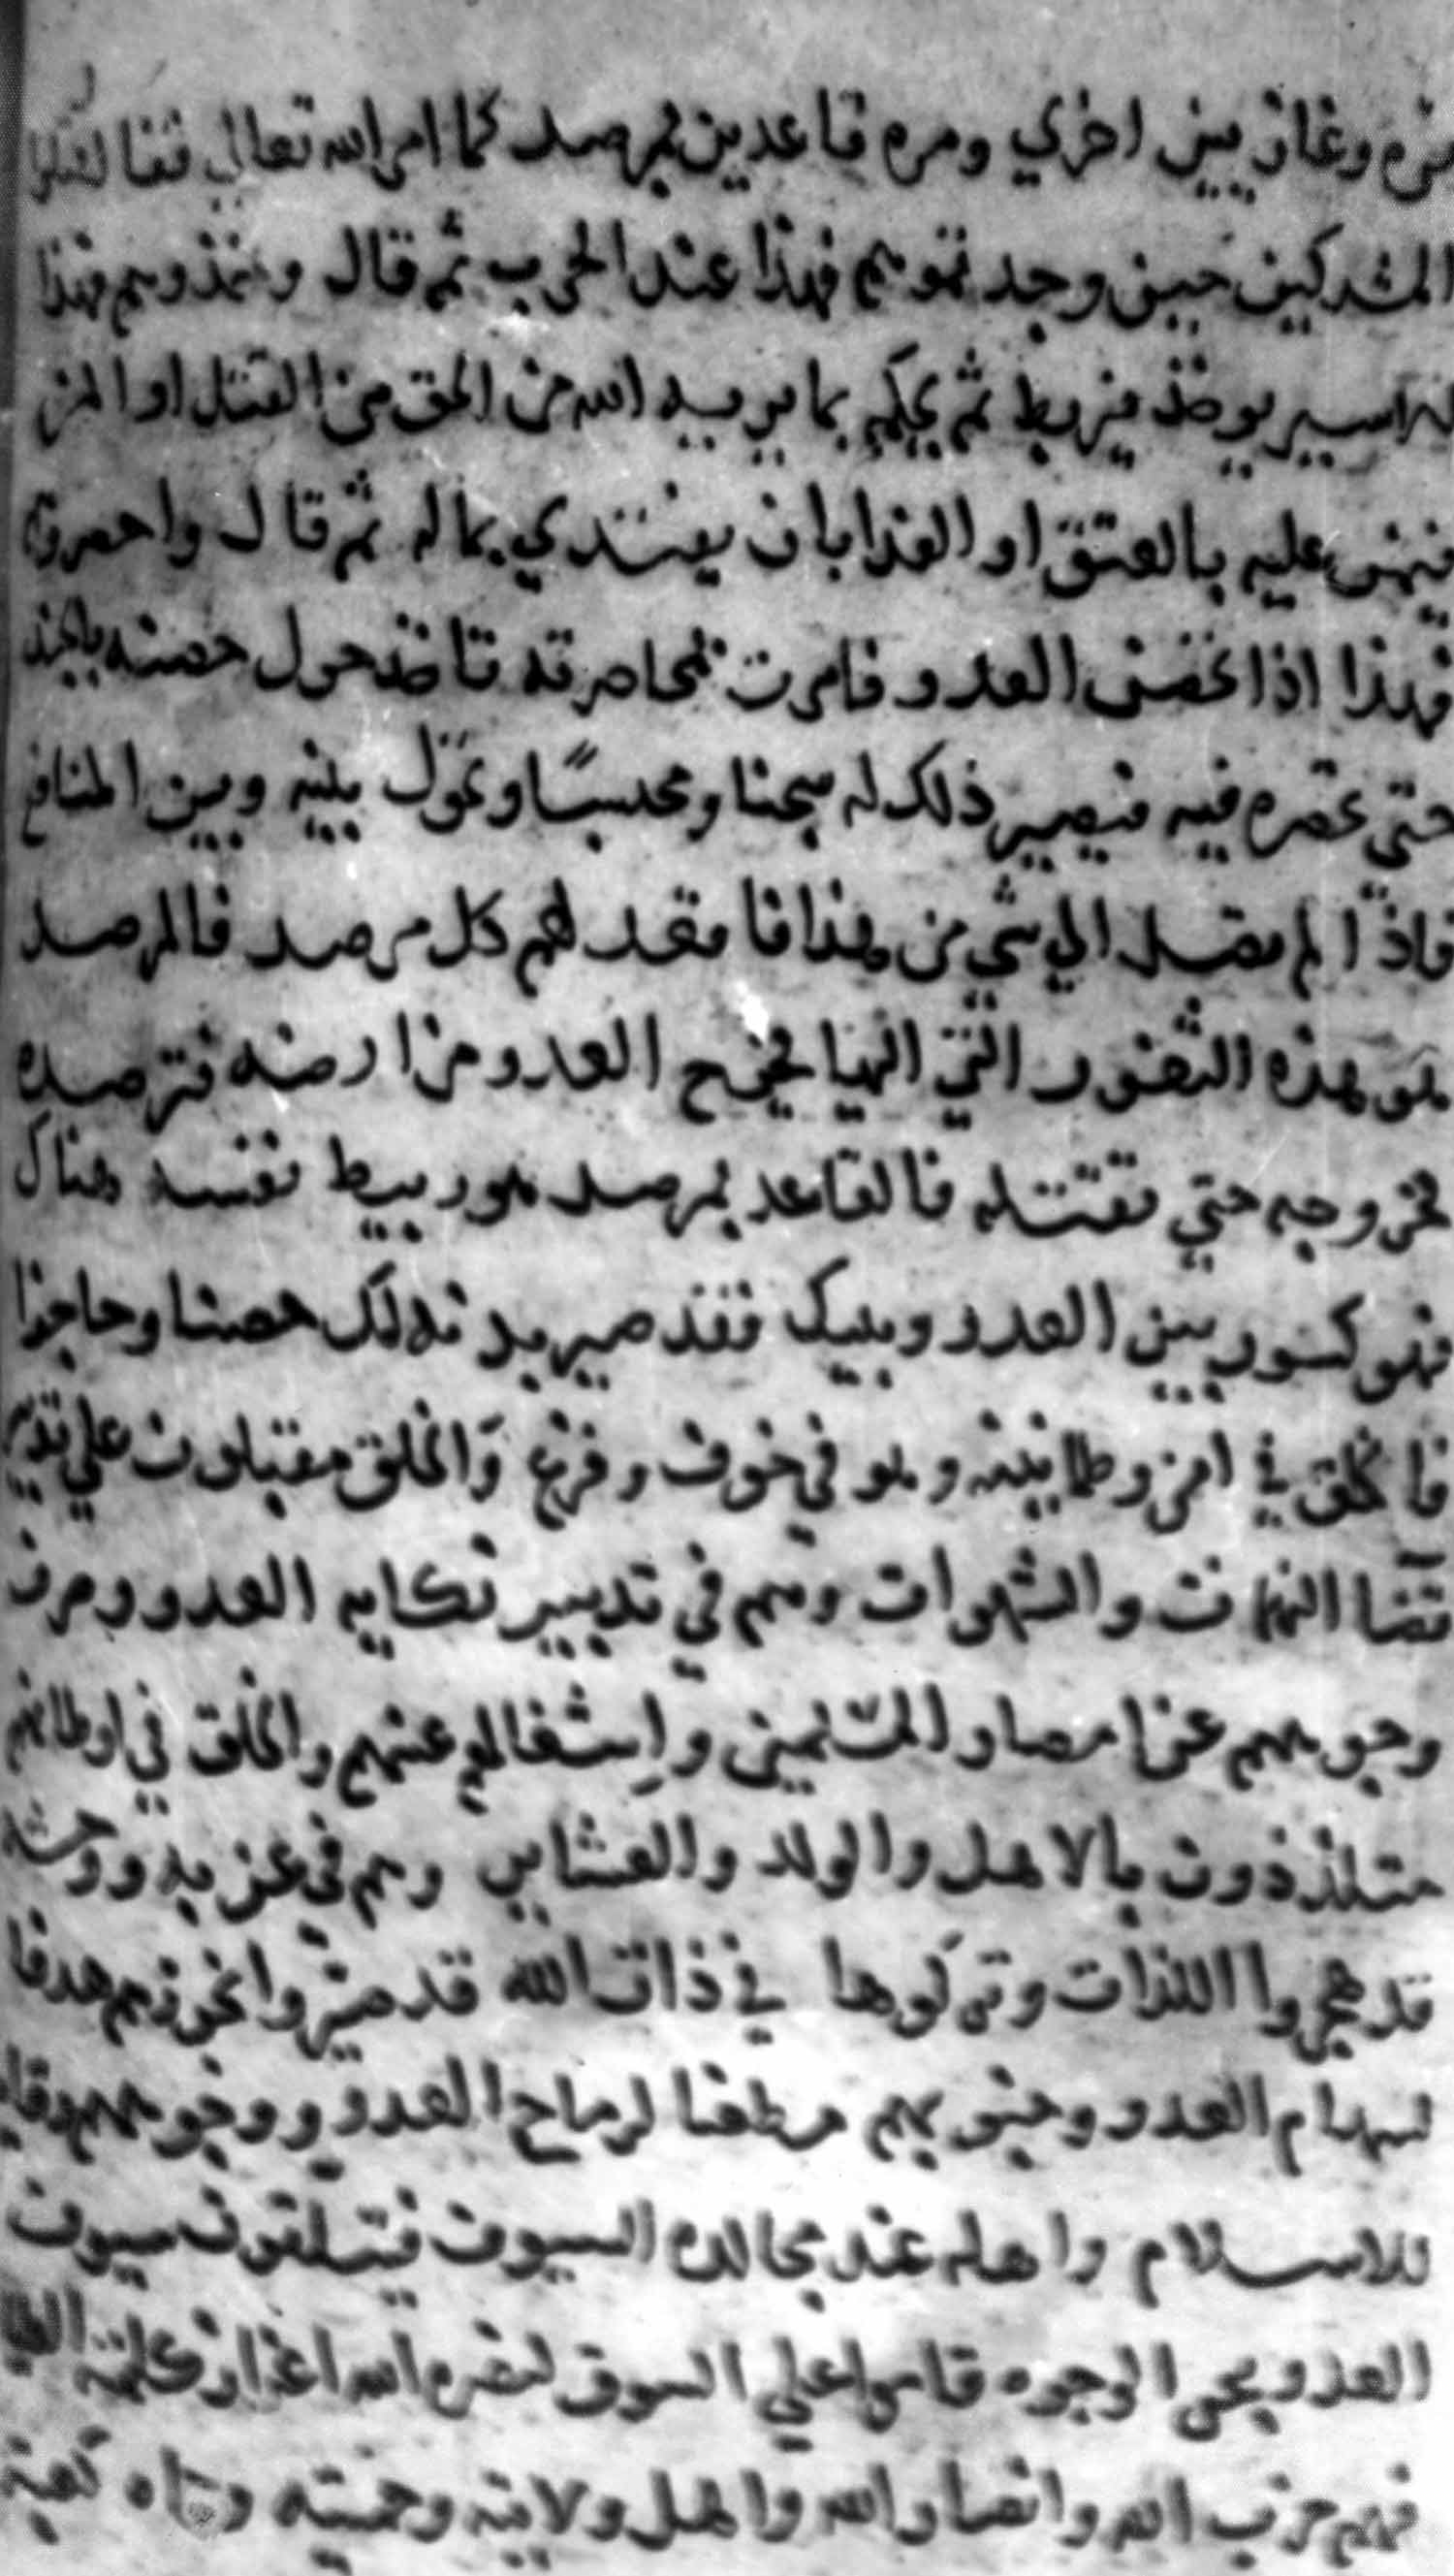 مره وغازيين اخري ومره قاعدين بمرصد كما امر الله تعالي فقال اقتلوا
المشركين حيث وجدتموهم فهذا عند الحرب ثم قال وخذوهم فهذا
اسير يوخذ فيربط ثم يحكم بما يريد الله من الحق من القتل او المن
فيمن عليه بالعتق او الفدا بان يفتدي بماله ثم قال واحصروهم
فهذا اذا تحصن العدو فامرت بمحاصرته تاخذ حول حصنه بالجند
حتي تحصره فيه فيصير ذلك له سجنا ومحبسا وتحول بينه وبين المنافع
فاذا لم تصل الي شي من هذا فاقعد لهم كل مرصد فالمرصد
هو هذه الثغور التي اليها يخرج العدو من ارضه فترصده
بخروجه حتي تقتله فالقاعد بمرصد هو ربيط نفسه هناك
فهو كسور بين العدو وبينك فقد صير بدنه لك حصنا وحاجزا
فالخلق في امن وطمانينه وهو في خوف وفزع والخلق مقبلون علي
قضا النهمات والشهوات وهم في تدبير نكايه العدو وصرف
وجوههم عن امصار المسلمين واشغالهم عنهم والخلق في اوطانهم
متلذذون بالاهل والولد والعشاير وهم في غربه ووحشه
قد هجروا اللذات وتركوها في ذات الله قد صيروا نحورهم هدفا
لسهام العدو وجنوبهم مطعنا لرماح العدو ووجوههم وقا
للاسلام واهله عند مجالده السيوف فيتلقون سيوف
العدو بحر الوجوه قاموا علي السوق لنصره الله اعزاز كلمته
فهم حزب الله وانصار الله واهل ولايته وحميته